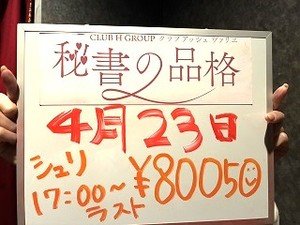 CLUB H GROUP クラブアッシュ ヴァリエ
秘書の品格
4月23日
シュリ
17:00~
ラスト
¥80050